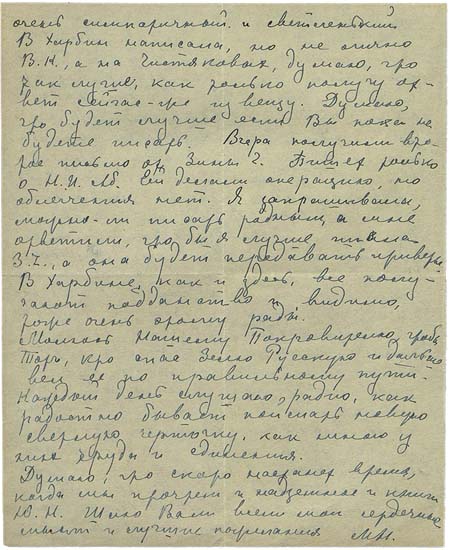 очень симпатичный и светленький
В Харбин написала, но не лично
В.К., а на Чистяковых, думаю, что
так лучше, как только получу от-
вет сейчас-же извещу. Думаю,
что будет лучше если Вы пока не
будете писать. Вчера получили вто-
рое письмо от Зины Г. Пишет только
о Н.И. Аб. Ей делали операцию, но
облегчения нет. Я запрашивала,
можно-ли писать родным, а мне
ответили, что бы я лучше писала
З.Г., а она будет передавать приветы
В Харбине, как и здесь, все полу-
чают подданство и, видимо,
тоже очень этому рады.
Молюсь Нашему Покровителю, чтобы
Тот, кто спас Землю Русскую и
вел ее по правильному пути.
Каждый день слушаю радио, как
радостно бывает поймать новую
светлую черточку, как много у
них труда и единения.
Думаю, что скоро настанет время,
когда мы прочтем и надземное и книги
Ю.Н. Шлю Вам всем мои сердечные
мысли и лучшие пожелания